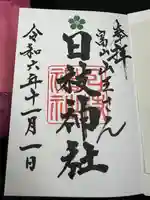 奉拝
富山山王さん
日枝神社
令和六年十一月一日